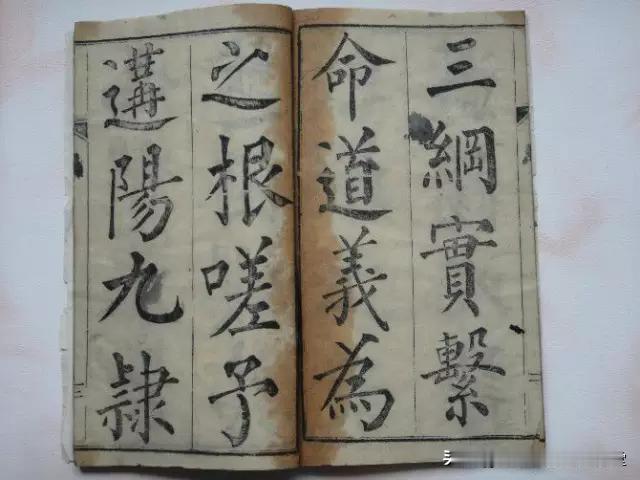 三綱實繫
命道義為
之根嗟予
遘陽九隷